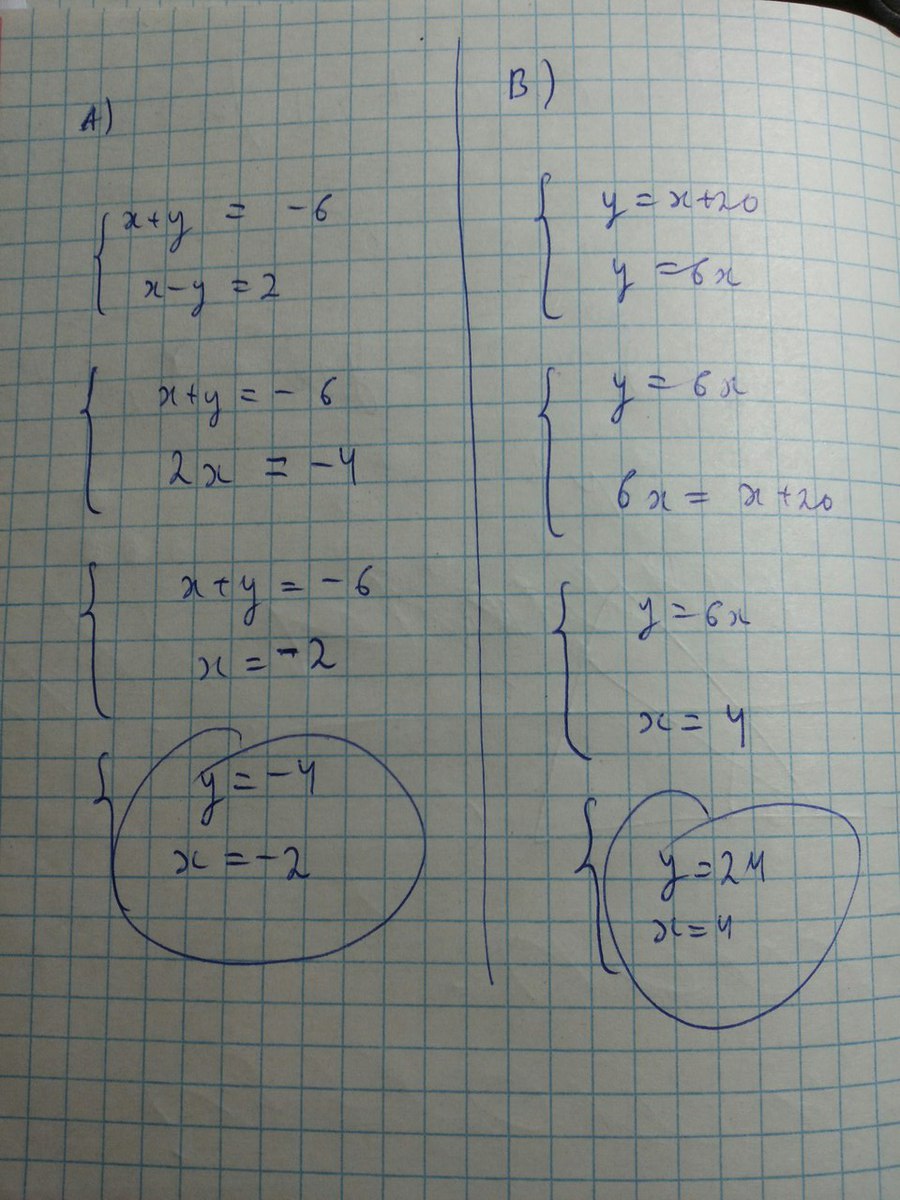 A)
x+y = -6
x-y = 2
x+y = -6
2x = -4
x+y = -6
x = -2
y = -4
x = -2
B)
y = x+20
y = 6x
y = 6x
6x = x+20
y = 6x
x = 4
y = 24
x = 4